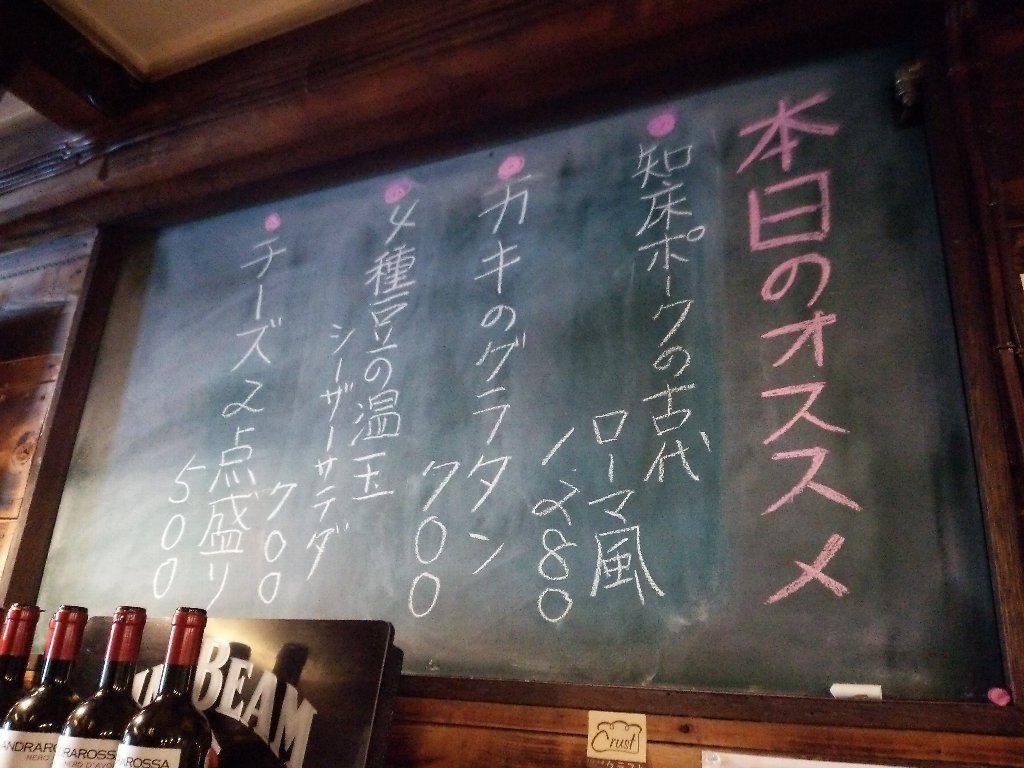 本日のオススメ
知床ポークの古代
ローマ風
1,280
カキのグラタン
700
4種豆の温玉
シーザーサラダ
700
チーズ2点盛り
500
BEAM
ANDRARO
RAROSSA
NERO D'AVO
AROSSA
Crust